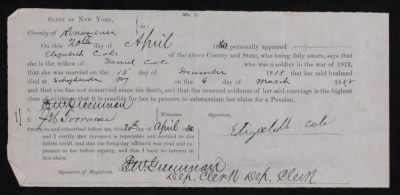 No. 7.
STATE OF NEW YORK,
County of Rensselaer
On this 20th day of April 1880 personally appeared
Elizabeth Cole of the above County and State, who being duly sworn, says that
she is the widow of Daniel Cole who was a soldier in the war of 1812,
that she was married on the 15 day of December 1815 that her said husband
died at on the 6 day of March 185
and that she has not remarried since his death, and the annexed evidence of her said marriage is the highest
class of evidence that it is possible for her to procure to substantiate her claim for a Pension.
Witnesses
Signature,
Elizabeth Cole
Sworn to and subscribed before me, this 20th April 80
and I certify that deponent is reputable and entitled to
fullest credit, and that the foregoing affidavit was read and ex-
plained to her before signing, and that I have no interest in
this claim.
Signature of Magistrate,
Dep. Clerk Dep. Clerk